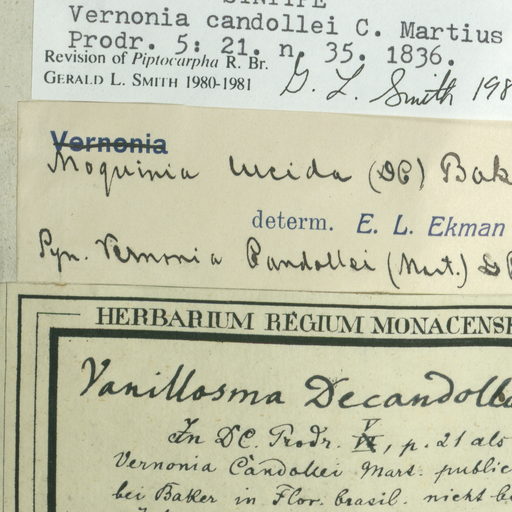 SYNTYPE
Vernonia candollei C. Martius
Prodr. 5: 21. n. 35. 1836.
Revision of Piptocarpha R. Br.
GERALD L. SMITH 1980-1981
G. L. Smith 198
Vernonia
Moquinia lucida (DC) Bak
determ. E. L. Ekman
Syn. Vernonia Candollei (Mart.)
HERBARIUM REGIUM MONACENS
Vanillosma Decandoll
In DC. Prodr. V, p. 21 als
Vernonia Candollei Mart. public
bei Baker in Flor. brasil. nicht b